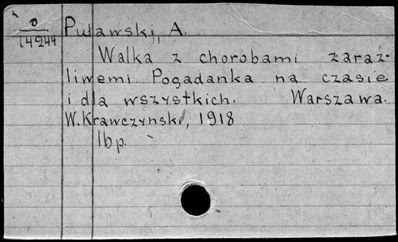 0
14244
Puławski, A.
Walka z chorobami zaraź-
liwemi Pogadanka na czasie
i dla wszystkich. Warszawa.
W. Krawczyński, 1918
16p.